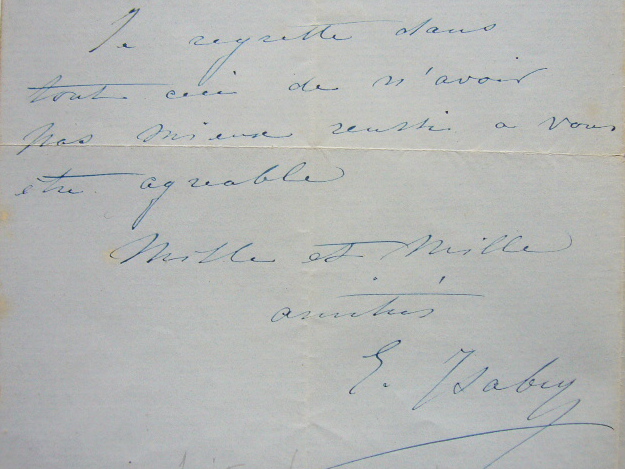 Je regrette dans
tout ceci de n'avoir
pas mieux reussi a vous
être agreable
Mille et Mille
amitiés
E. Isabey